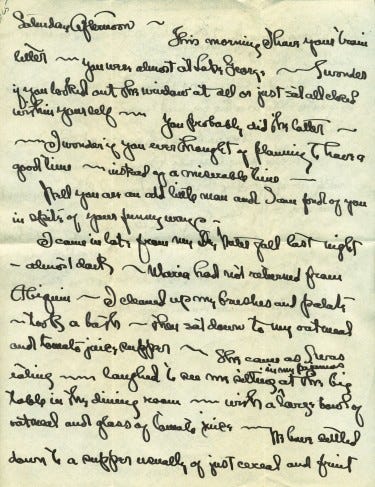 Saturday Afternoon ~
This morning I have your train
letter — you were almost at Lake George — I wonder
if you looked out the window at all or just sat all closed
within yourself —
You probably did the latter —
— I wonder if you ever thought of planning to have a
good time — instead of a miserable time —
Well you are an odd little man and I am fond of you
in spite of your funny ways —
I came in late from my last night
— almost dark — Maria had not returned from
Abiquiu — I cleaned up my brushes and palate
— took a bath — then sat down to my oatmeal
and tomato juice supper — came as I was
in my pajamas
eating — laughed to see me sitting at the big
table in the dining room — with a large bowl of
oatmeal and glass of tomato juice — have settled
down to a supper usually of just cereal and fruit